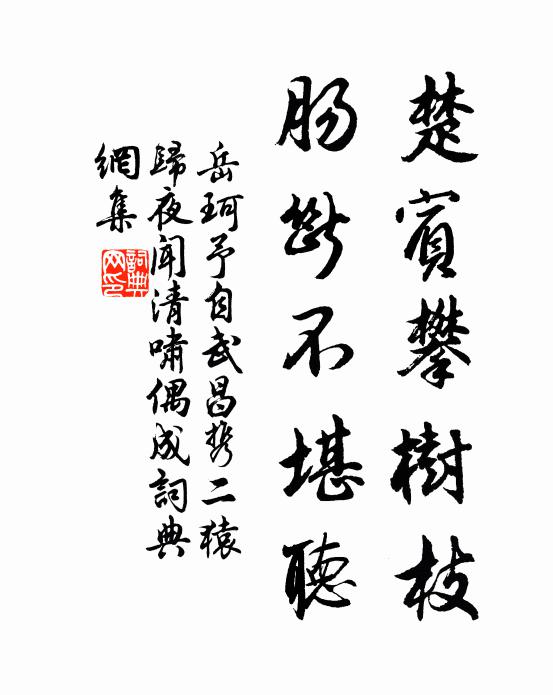 楚賓攀樹枝
腸斷不堪聽
岳珂予自武昌携二猿
歸夜聞清嘯偶成詞典
網集
詞典網印